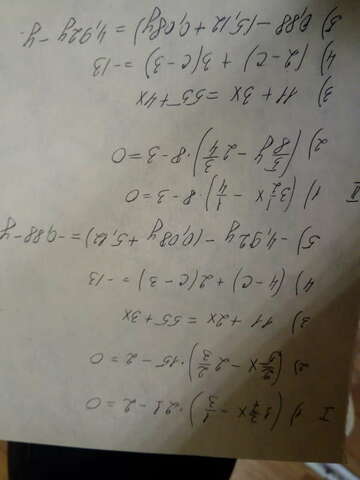 I 1) (1 3/7 x - 1/3) · 21 - 2 = 0
2) ( x - 2 2/3) · 15 - 2 = 0
3) 11 + 2x = 55 + 3x
4) (4 - c) + 2(c - 3) = -13
5) -4,92y - (0,08y + 5,12) = -0,88 - y
II 1) (3 1/2 x - 1/4) · 8 - 3 = 0
2) (5/8 y - 2 3/4) · 8 - 3 = 0
3) 11 + 3x = 55 + 4x
4) (2 - c) + 3(c - 3) = -13
5) 0,88 - (5,12 + 0,08y) = 4,92y - y.